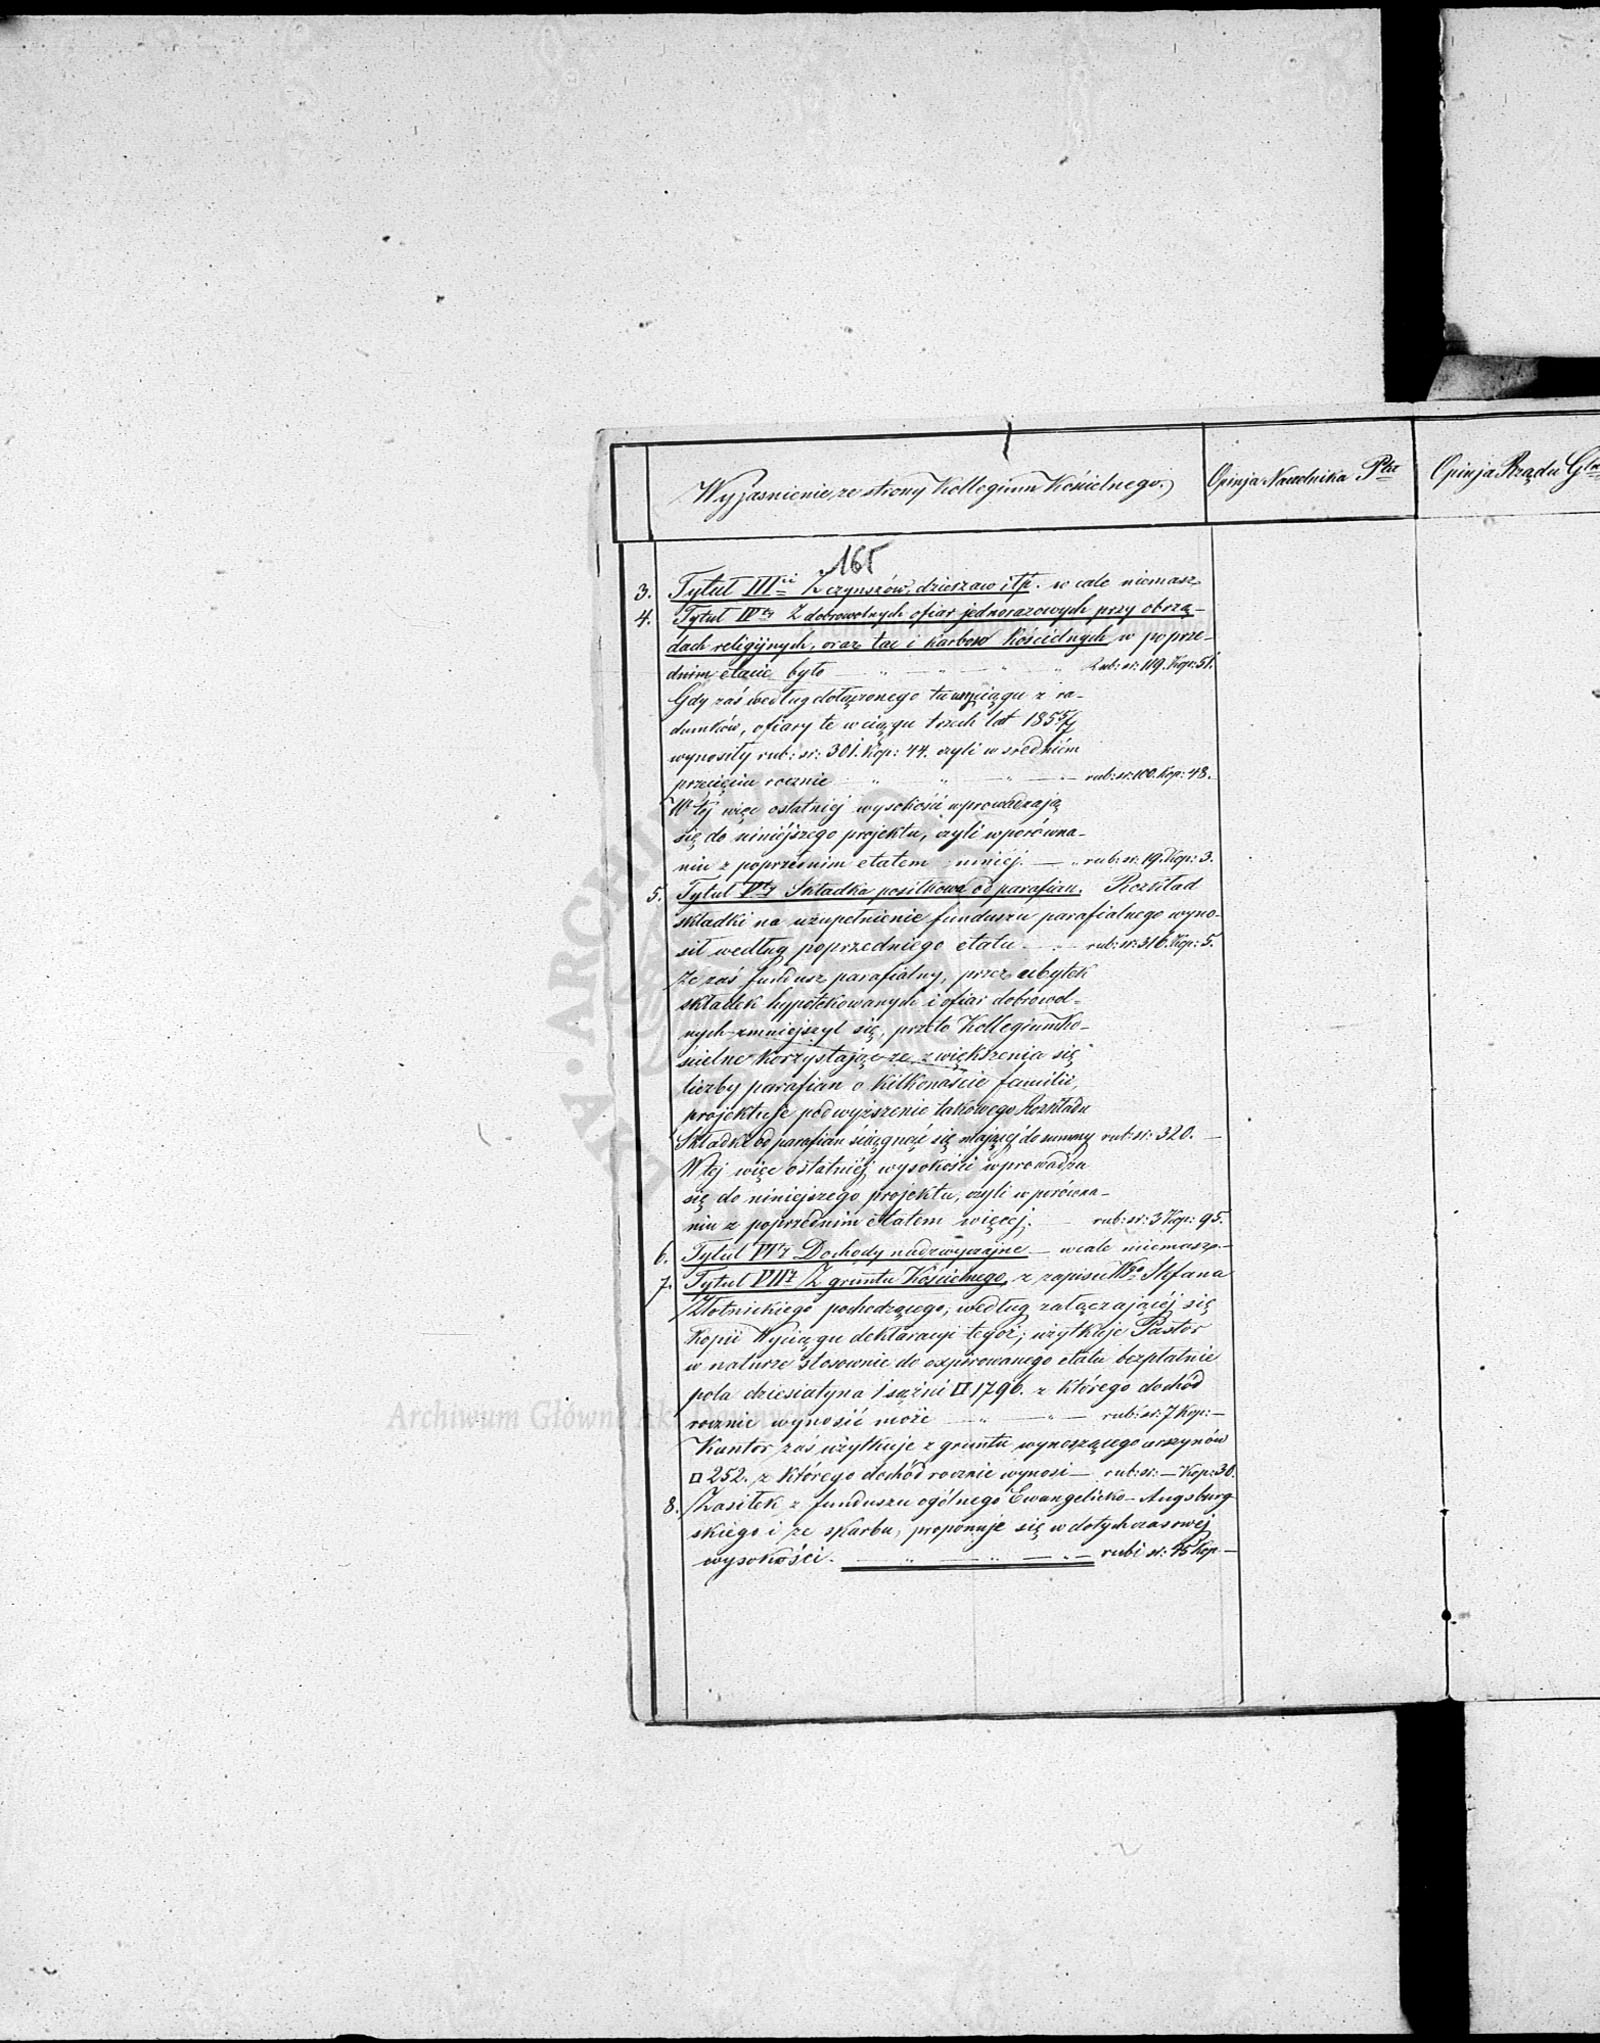 Wyjasnienie, ze strony Kollegium Kościelnego.
Opinja Naczelnika Ptu
Opinja Rządu Gln
165
3. Tytuł III ci Z czynszów, dzierzaw i t.p. w cale niemasz
4. Tytuł IV ty Z dobrowolnych ofiar jednorazowych przy obrzą-
dach religijnych, oraz tac i karbon Kościelnych w poprze-
dnim etacie było — „ — „ — „ Rub: sr: 119. Kop: 51.
Gdy zaś według dołączonego tu wyciągu z ra-
chunków, ofiary te w ciągu trzech lat 1855/7
wynosiły rub: sr: 301. Kop: 44. czyli w średnim
przecięciu rocznie „ „ „ — rub: sr: 100. Kop: 48.
W téj więc ostatniej wysokość wprowadzają
się do niniéjszego projektu, czyli w porówna-
niu z poprzednim etatem mniéj. — „ rub: sr: 19. Kop: 3.
5. Tytuł V ty Składka posiłkowa od parafian. Rozkład
składki na uzupełnienie funduszu parafialnego wyno-
sił według poprzedniego etatu — „ — rub: sr: 316. Kop: 5.
Ze zaś fundusz parafialny, przez ubytek
składek hypotekowanych i ofiar dobrowol-
nych zmniejszył się, przeto Kollegium Ko-
ścielne korzystając ze zwiększenia się
liczby parafian o kilkanaście familii,
projektuje podwyższenie takowego Rozkładu
Składki od parafian ściągnąć się mającéj do summy rub: sr: 320. —
W téj więc ostatniéj wysokości wprowadza
się do niniejszego projektu, czyli w porówna-
niu z poprzednim etatem więcej. — rub: sr: 3 Kop: 95.
6. Tytuł VI ty Dochody nadzwyczajne — wcale niemasz —
7. Tytuł VII y Z gruntu Kościelnego, z zapisu Wgo Stefana
Złotnickiego pochodzącego, według załączającéj się
Kopii Wyciągu deklaracyi tegoż, użytkuje Pastor
w naturze stosownie do expirowanego etatu bezpłatnie
pola dziesiatyna 1 sążni □ 1796. z którego dochód
rocznie wynosić może — „ — „ — rub: sr: 7 Kop: —
Kantor zaś użytkuje z gruntu wynoszącego arszynów
□ 252. z którego dochód rocznie wynosi — rub: sr: — Kop: 30.
8. Zasiłek z funduszu ogólnego Ewangelicko-Augsburg
skiego i ze skarbu, proponuje się w dotychczasowéj
wysokości. — „ — „ — „ — rub: sr: 45 Kop —
Archiwum Główne Akt Dawnych